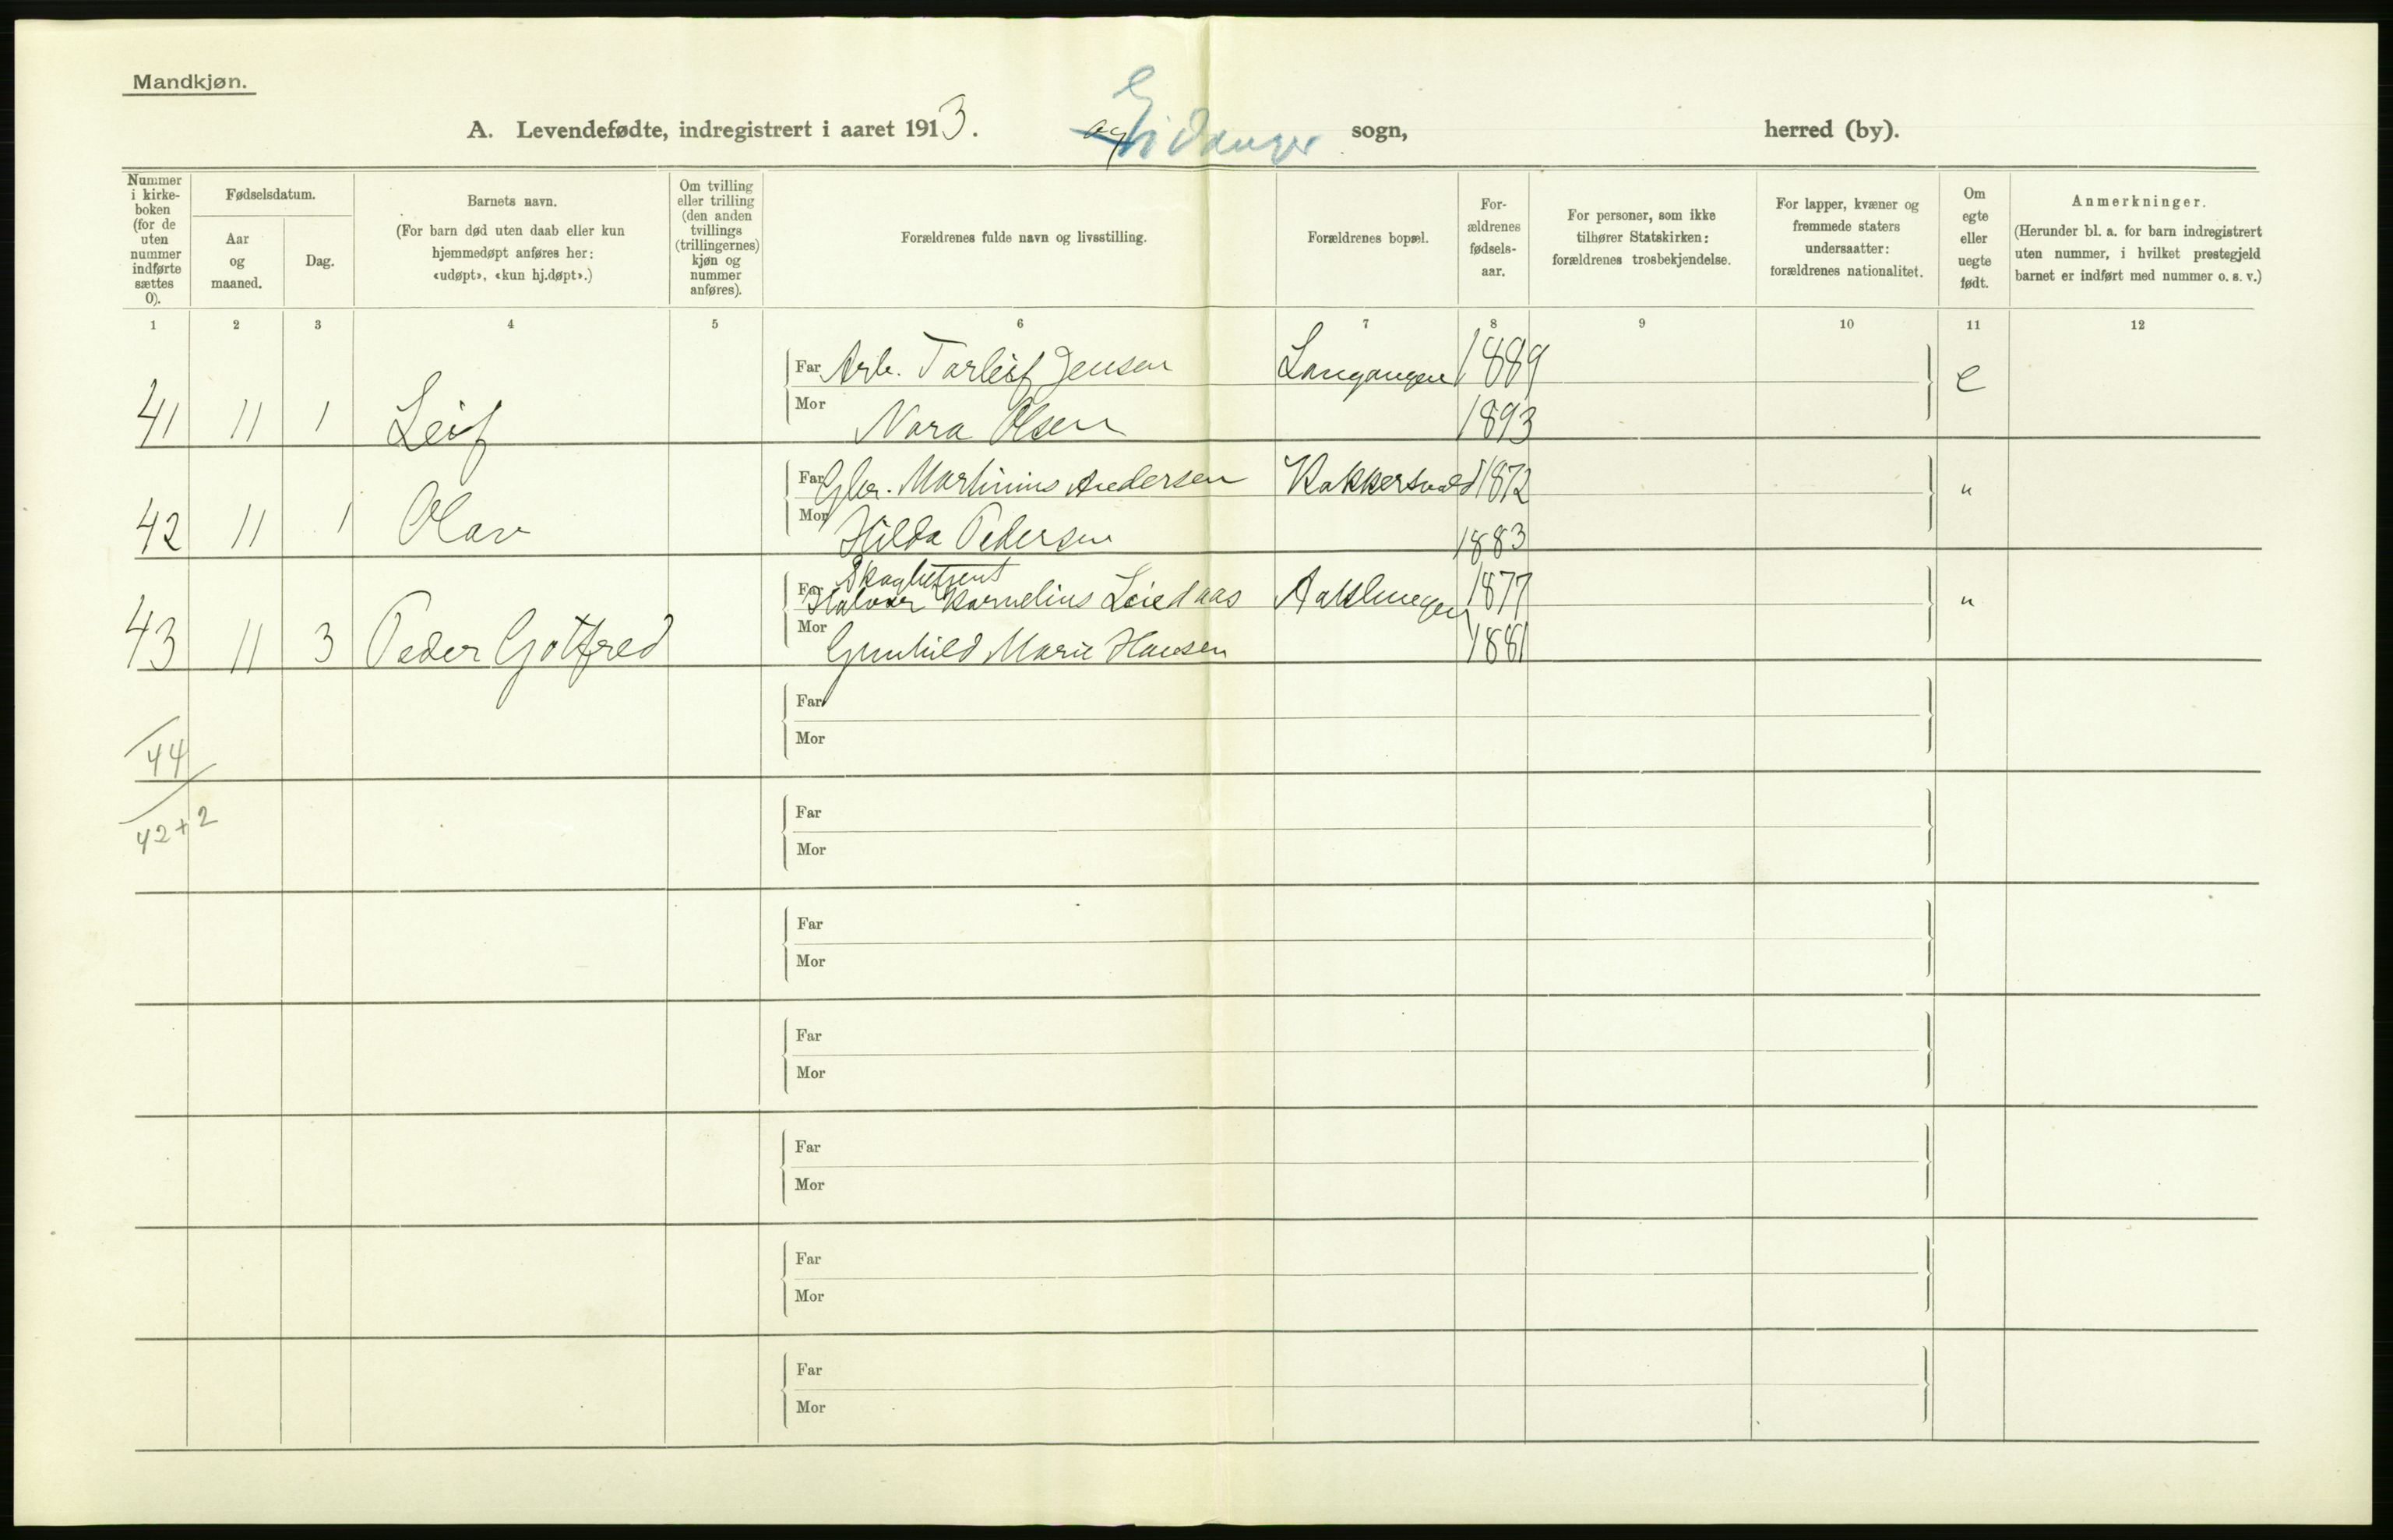 Mandkjøn.
A. Levendefødte, indregistrert i aaret 1913. Eidanger sogn, herred (by).
Nummer i kirke-boken (for de uten nummer indførte sættes 0).
Fødselsdatum.
Aar og maaned.
Dag.
Barnets navn.
(For barn død uten daab eller kun hjemmedøpt anføres her: «udøpt», «kun hj.døpt».)
Om tvilling eller trilling (den anden tvillings (trillingernes) kjøn og nummer anføres).
Forældrenes fulde navn og livsstilling.
Forældrenes bopæl.
For-ældrenes fødsels-aar.
For personer, som ikke tilhører Statskirken: forældrenes trosbekjendelse.
For lapper, kvæner og fremmede staters undersaatter: forældrenes nationalitet.
Om egte eller uegte født.
Anmerkninger.
(Herunder bl. a. for barn indregistrert uten nummer, i hvilket prestegjeld barnet er indført med nummer o. s. v.)
1 2 3 4 5 6 7 8 9 10 11 12
Far Arb. Tarleif Jensen Langangen 1889 e
41 11 1 Leif Mor Nora Olsen 1893
Far Gbr. Martinius Andersen 1872 "
42 11 1 Olav Mor Hilda Pedersen 1883
Far Halvor Kornelius 1877 "
43 11 3 Peder Gotfred Mor Gunhild Marie Hansen 1881
Far
44 Mor
42+2 Far
Mor
Far
Mor
Far
Mor
Far
Mor
Far
Mor
Far
Mor